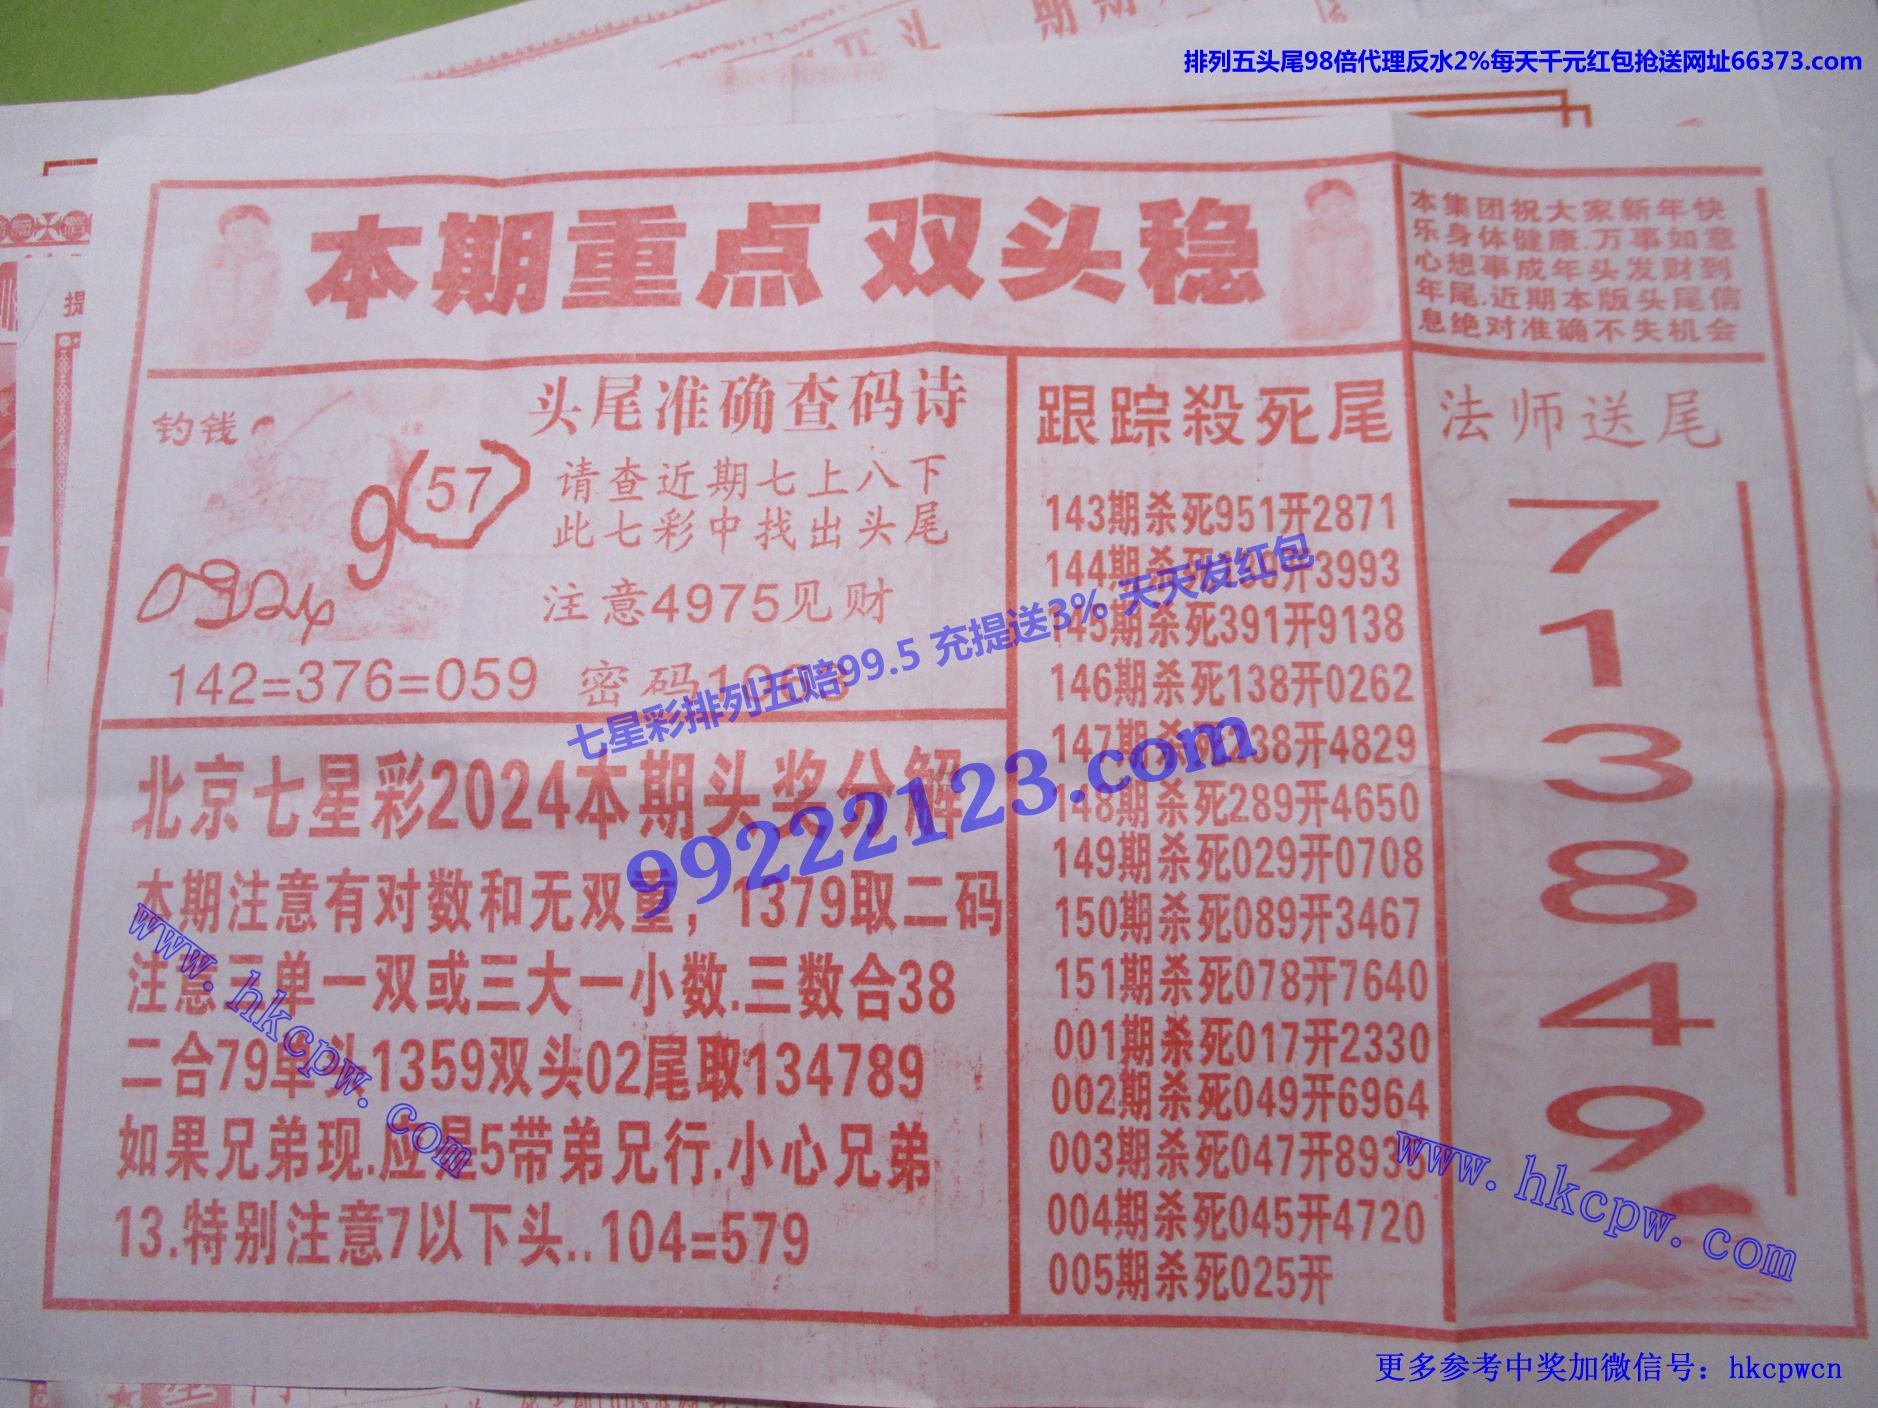 排列五头尾98倍代理反水2%每天千元红包抢送网址66373.com
本期重点 双头稳
本集团祝大家新年快
乐身体健康.万事如意
心想事成年头发财到
年尾.近期本版头尾信
息绝对准确不失机会
钓钱
9(57)
头尾准确查码诗
请查近期七上八下
此七彩中找出头尾
注意4975见财
142=376=059 密码
北京七星彩2024本期头奖分解
本期注意有对数和无双重，1379取二码
注意三单一双或三大一小数.三数合38
二合79单头1359双头02尾取134789
如果兄弟现.应是5带弟兄行.小心兄弟
13.特别注意7以下头..104=579
跟踪殺死尾
143期杀死951开2871
144期杀死 开3993
145期杀死391开9138
146期杀死138开0262
147期杀死238开4829
148期杀死289开4650
149期杀死029开0708
150期杀死089开3467
151期杀死078开7640
001期杀死017开2330
002期杀死049开6964
003期杀死047开893
004期杀死045开4720
005期杀死025开
法师送尾
7
1
3
8
4
9
七星彩排列五赔99.5 充提送3% 天天发红包
99222123.com
www.hkcpw.com
www.hkcpw.com
更多参考中奖加微信号：hkcpwcn